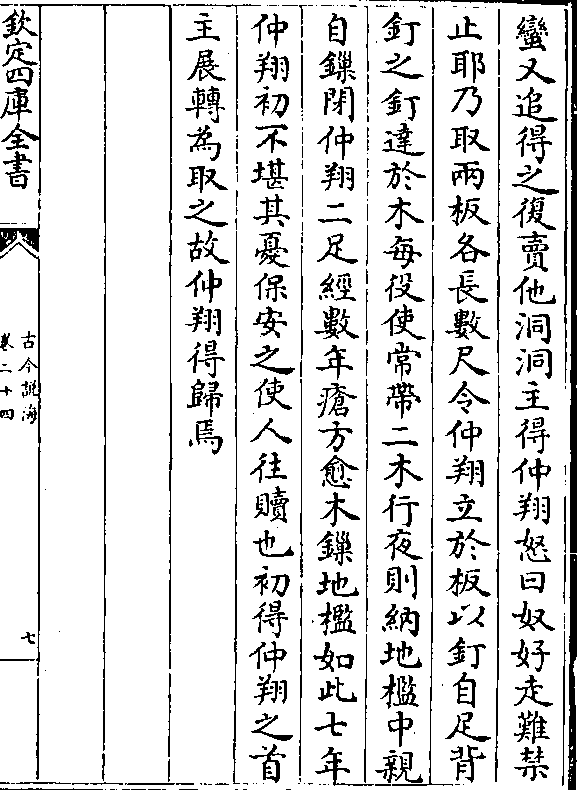 蠻又追得之復賣他洞洞主得仲翔怒曰奴好走難禁
止耶乃取兩板各長數尺令仲翔立於板以釘自足背
釘之釘達於木每役使常帶二木行夜則納地檻中親
自鏁閉仲翔二足經數年瘡方愈木鏁地檻如此七年
仲翔初不堪其憂保安之使人往贖也初得仲翔之首
主展轉為取之故仲翔得歸焉
欽定四庫全書
古今說海
卷二十四
七